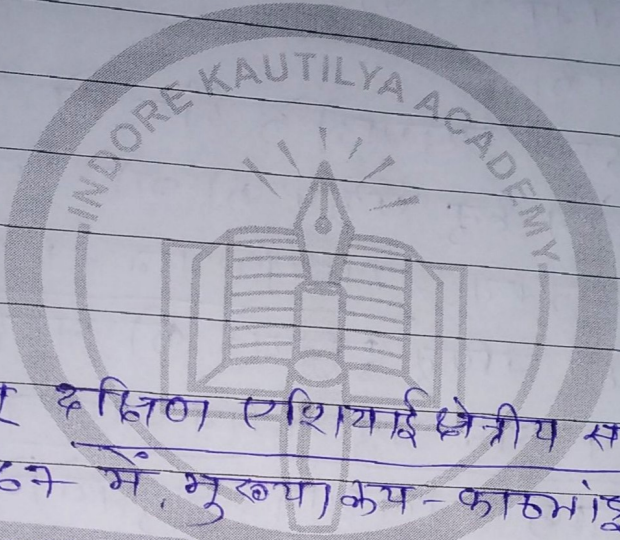 INDORE KAUTILYA ACADEMY
दक्षिण एशियाई क्षेत्रीय स
में, मुख्यालय - काठमांडू